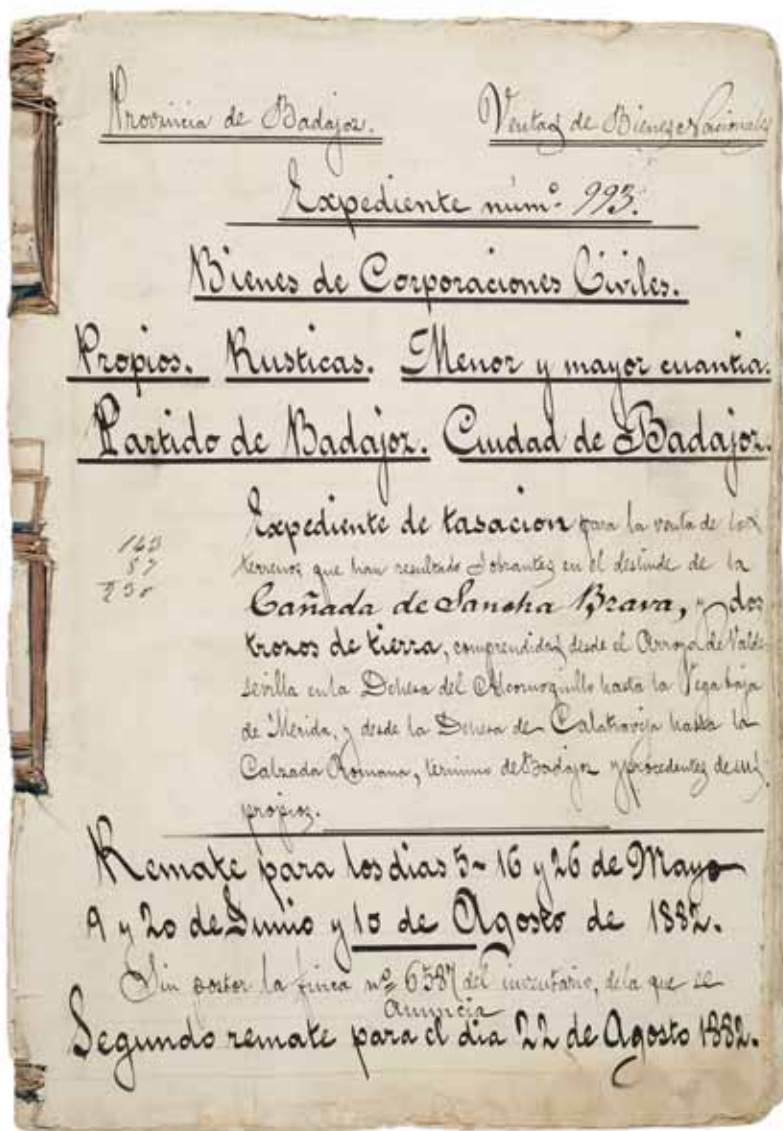 Provincia de Badajoz.
Ventas de Bienes Nacionales
Expediente núm.º 993.
Bienes de Corporaciones Civiles.
Propios. Rusticas. Menor y mayor cuantia.
Partido de Badajoz. Ciudad de Badajoz.
Expediente de tasacion para la venta de los
terrenos que han resultado sobrantes en el deslinde de la
Cañada de Sancha Brava, y dos
trozos de tierra, comprendidas desde el Arroyo de Valde-
sevilla en la Dehesa del Alcornoquillo hasta la Vega baja
de Merida, y desde la Dehesa de Calatraveja hasta la
Calzada Romana, termino de Badajoz y procedentes de sus
propios.
163
87
250
Remate para los dias 5 - 16 y 26 de Mayo
9 y 20 de Junio y 10 de Agosto de 1882.
Sin postor la finca nº 6587 del inventario, de la que se
anuncia
Segundo remate para el dia 22 de Agosto 1882.